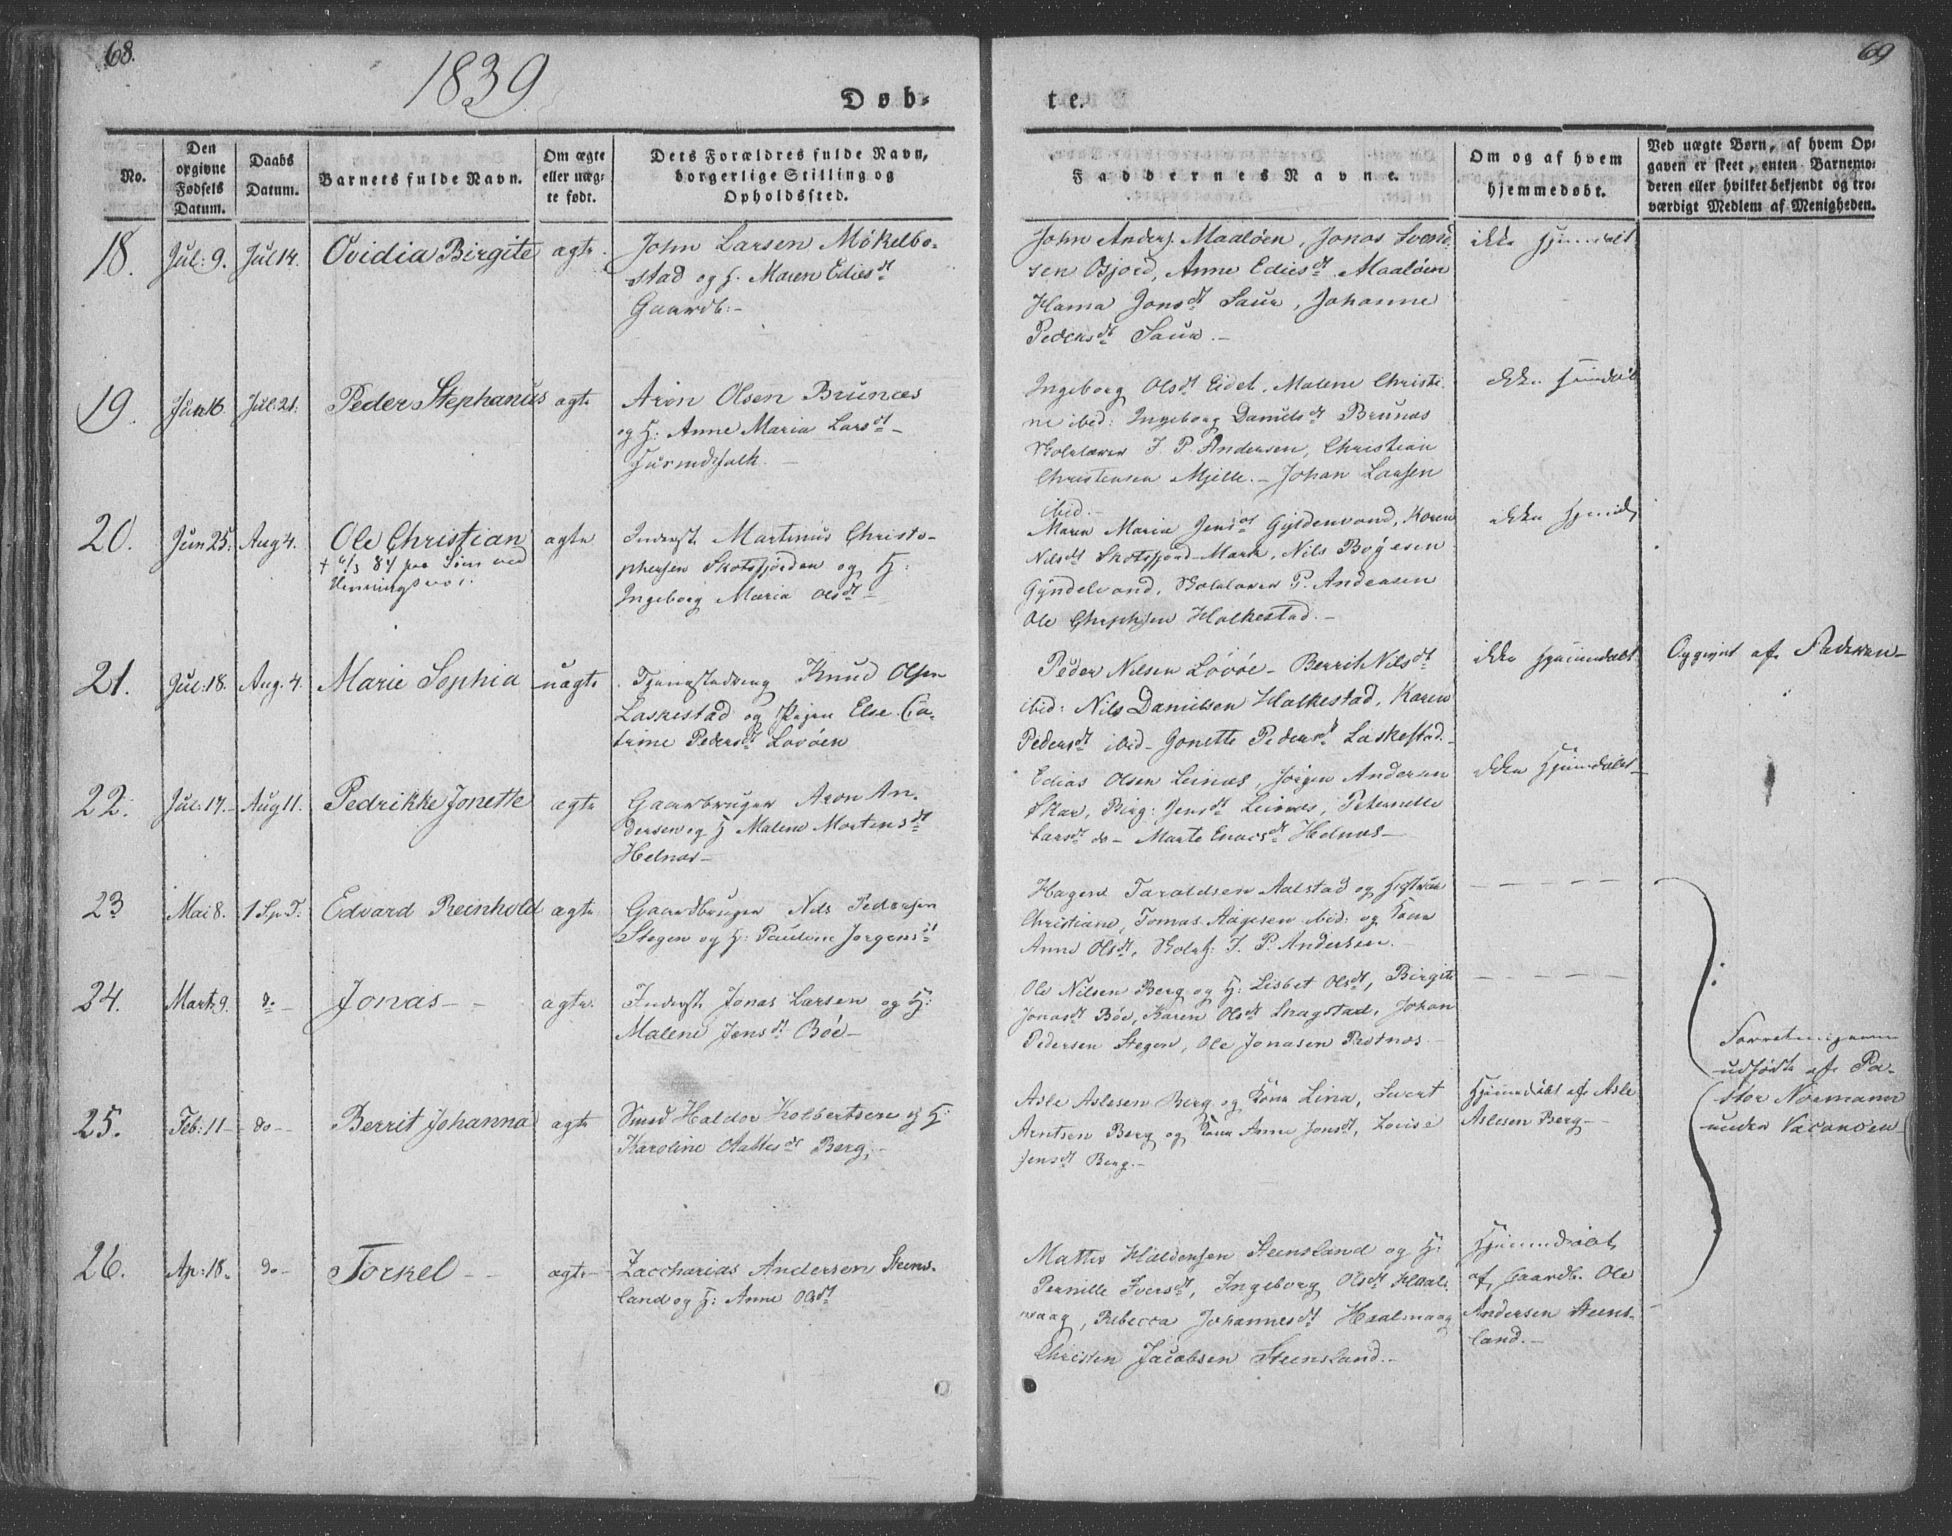 68.
1839
Døb-
No.
Den
opgivne
Fødsels
Datum.
Daabs
Datum.
Barnets fulde Navn.
Om ægte
eller uæg-
te født.
Dets Forældres fulde Navn,
borgerlige Stilling og
Opholdssted.
18.
Jul: 9.
Jul 14.
Ovidia Birgite
ægte.
John Larsen Mökelbo-
stad og H. Maren Edies dt
Gaardb:-
19.
Jun 16.
Jul: 21:
Peder Stephanus
ægte
Aron Olsen Brunæs
og H: Anne Maria Lars dt -
Huusmdsfolk. -
20.
Jun 25.
Aug 4.
Ole Christian
Henningsvær.
ægte
Inderst. Martinus Christo-
phersen Skotsfjorden og H:
Ingeborg Maria Ols dt -
21.
Jul: 18.
Aug. 4.
Marie Sophia
-uægte
Knud Olsen
Laskestad og Pigen Else Ca-
trine Peders dt Lovöen
22.
Jul: 17.-
Aug 11.
Pedrikke Jonette
ægte
Gaarbruger Aron An-
dersen og H Malene Mortens dt
Helnæs-
23
Mai 8.
1 Sp. T.
Edvard Reinhold
ægte
Gaardbruger Nils Pedersen
Stegen og H: Pauline Jørgens dt
24.
Marts 9.
do -
Jonas - -
ægte.
Inderst. Jonas Larsen og H:
Malene Jens dt Böe-
25.
Feb: 11-
do -
Berrit Johanna
ægte
Smed Haldor Kolbertsen og H:
Karoline Mattis dt Berg.-
26.
Ap: 18.
do -
Torkel - -
ægte-
Zaccharias Andersen Steens-
land og H: Anne Ols dt
69
te.
Faddernes Navne.
Om og af hvem
hjemmedøbt.
Ved uægte Børn, af hvem Op-
gaven er skeet, enten Barnemo-
deren eller hvilket bekjendt og tro-
værdigt Medlem af Menigheden.
John Anders. Maalöen, Jonas Svend-
sen Bjord, Anne Edies dt Maalöen
Hanna Jons dt Saur, Johanne
Peders dt Saur.-
ikke hjemdøbt
Ingeborg Ols dt Eidet. Malene Christi-
ne ibid: Ingeborg Daniels dt Brunæs
Skolelærer J. P. Andersen, Christian
Christensen Mjelle.- Johan Larsen
ibid.-
ikke hjemdøbt
Maren Maria Jens dt Karen
Nils dt Skotsfjord Mark, Nils Boyesen
Skolelærer P. Andersen
Ole Halkestad.-
ikke hjemd
Peder Nilsen Lövöe- Berrit Nils dt
ibid: Nils Danielsen Halkestad, Karen
Peders dt ibid- Jonette Peders dt Laskestad.-
ikke hjemmdøbt
Opgivet af Faderen-
Edias Olsen Leinæs, Jörgen Andersen
Skar, Birg: Jens dt Leinæs, Peternelle
Lars dt do - Marte Enoos dt Helnæs-
ikke hjemdøbt-
Hagen Taraldsen Aalstad og Hustrue
Christiane, Tomas Aagesen ibid: og Kone
Anne Ols dt, Skoleh: J. P. Andersen.-
Ole Nilsen Berg og H: Lisbet Ols dt, Birgite
Jonas dt Böe, Karen Ols dt Skagstad, Johan
Pedersen Stegen, Ole Jonasen Rotnæs-
Forretningerne
udførte af Pa-
stor Normann
under Vacancen-
Asle Aslesen Berg og Kone Lina, Sivert
Arntsen Berg og Kone Anne Jons dt, Lovise
Jens dt Berg.-
Hjemmdøbt af Asle
Aslesen Berg-
Mattis Haldorsen Steensland og H:
Pernille Ivers dt, Ingeborg Ols dt Haals-
naag, Rebecca Johannes dt Haalsnaag
Christen Jacobsen Steensland.-
Hjemmdøbt
af Gaardb. Ole
Andersen Steens-
land.-